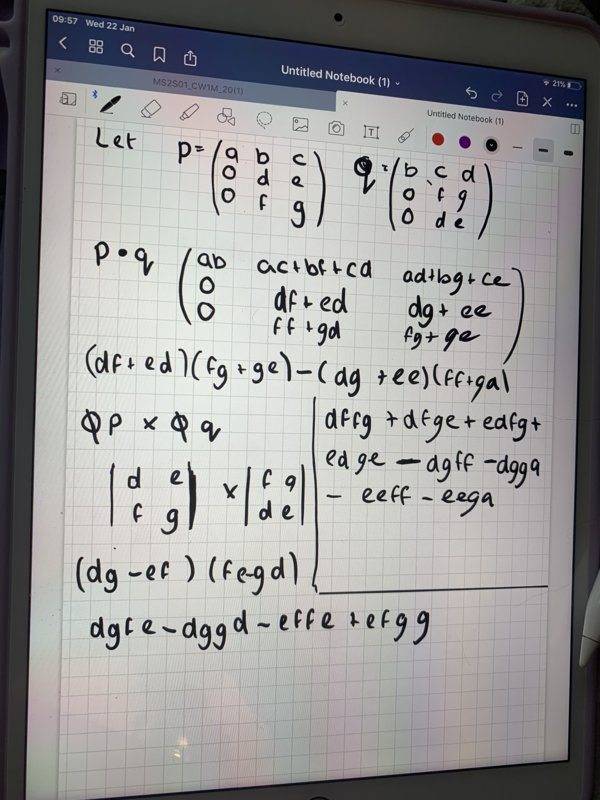 09:57 Wed 22 Jan
21%
Untitled Notebook (1)
MS2S01_CW1M_20(1)
Untitled Notebook (1)
Let p = (a b c) q = (b c d)
0 d e 0 f g
0 f g 0 d e
p • q (ab ac+bf+cd ad+bg+ce)
0 df+ed dg+ee
0 ff+gd fg+ge
(df+ed)(fg+ge)-(dg+ee)(ff+gd)
φp × φq
|d e| × |f g|
|f g| |d e|
(dg-ef)(fe-gd)
dgfe-dggd-effe+efgg
dffg+dfge+edfg+
edge-dgff-dggd
-eeff-eegd